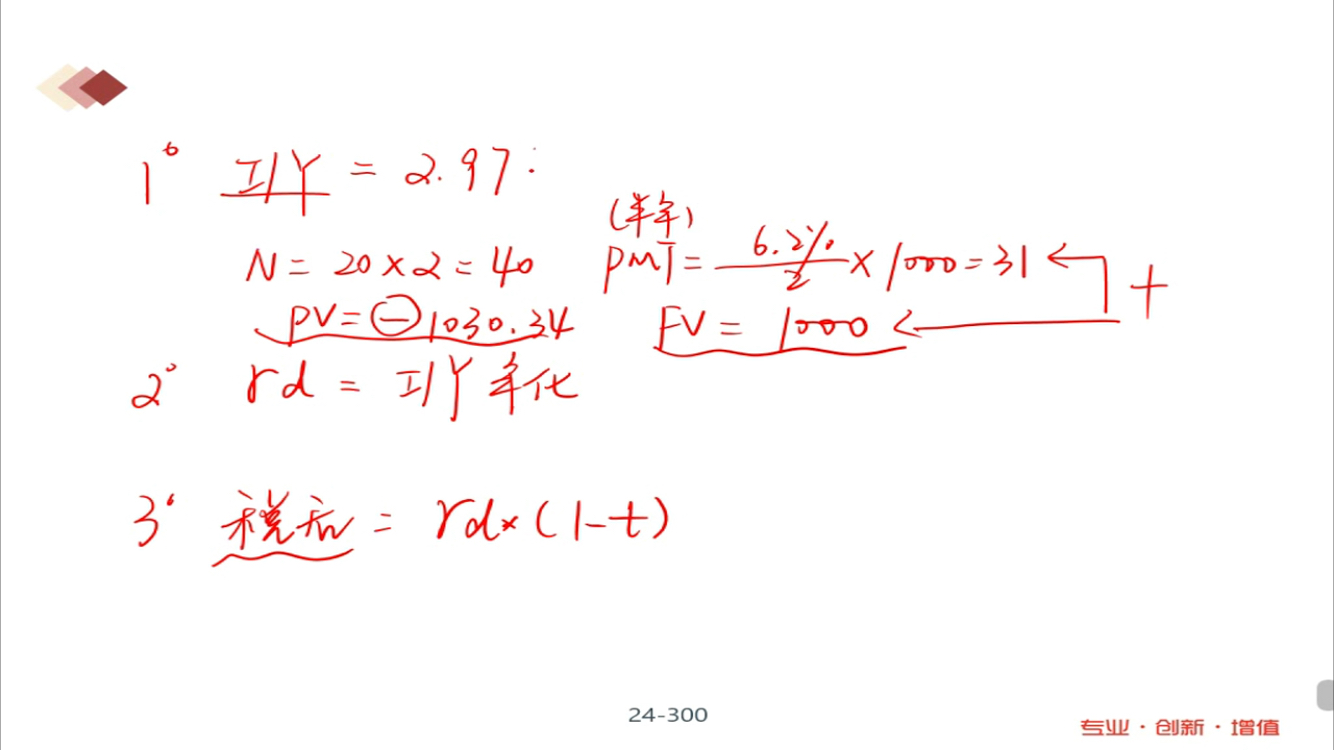 1° I/Y = 2.97
(半年)
N = 20×2 = 40 PMT = 6.2%/2 × 1000 = 31
+
PV = ⊖1030.34 FV = 1000
2° rd = I/Y 年化
3° 税后 = rd×(1-t)
24-300
专业·创新·增值